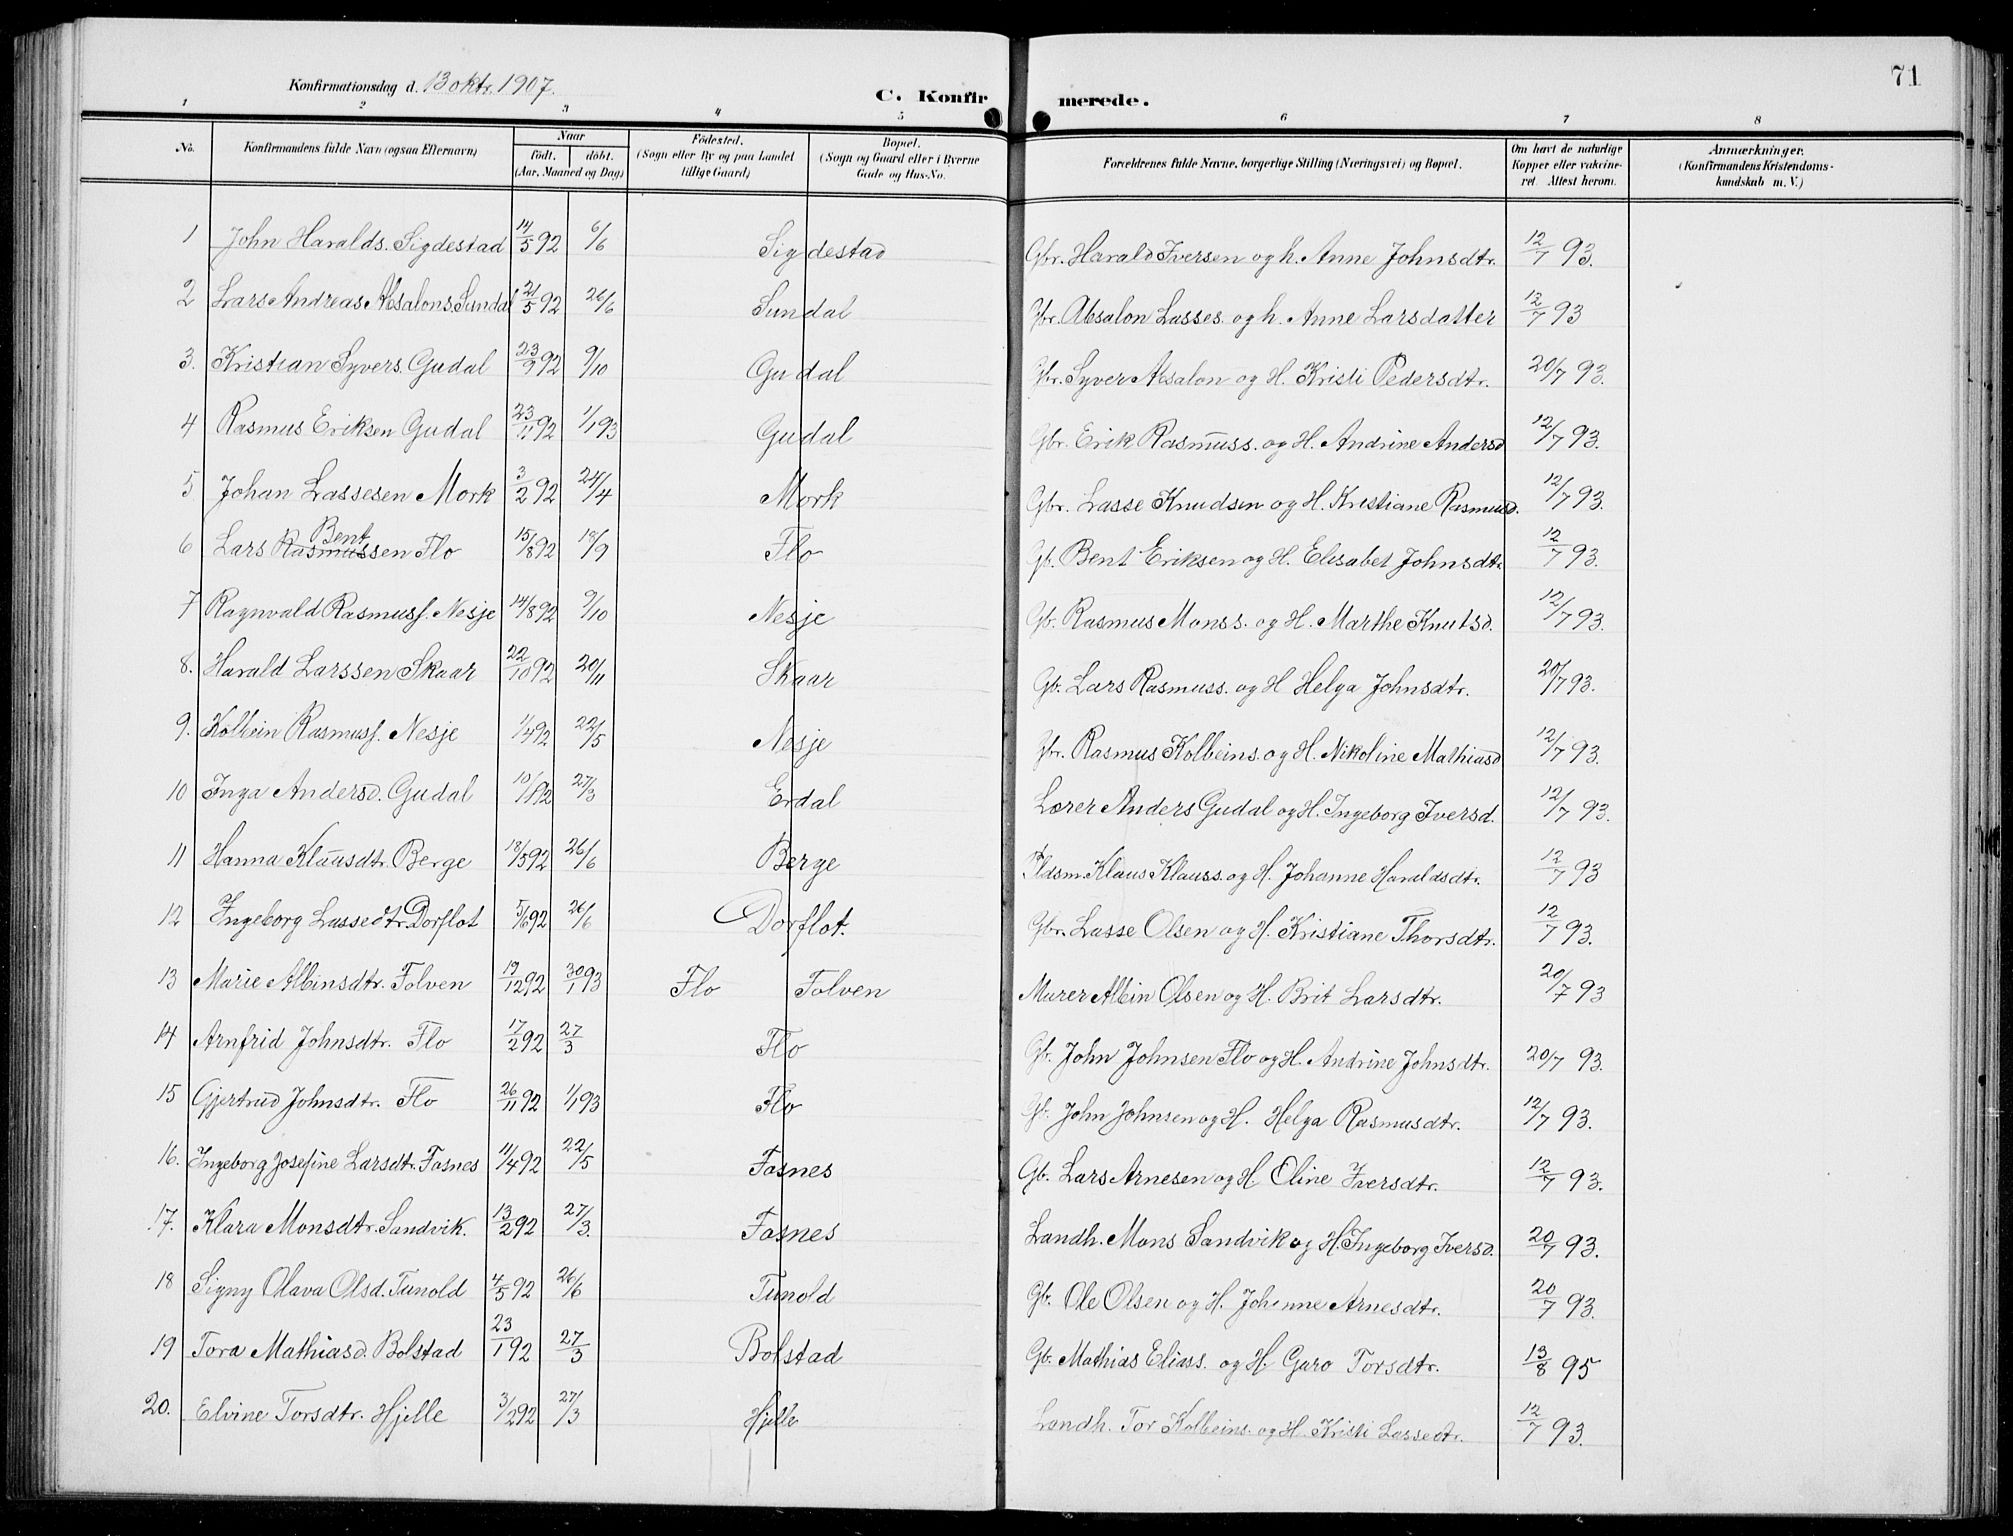 71
Konfirmationsdag d. 13 oktr. 1907.
C. Konfirmerede.
1 2 3 4 5 6 7 8
No. Konfirmandens fulde Navn (ogsaa Efternavn) Naar født. døbt. (Aar, Maaned og Dag) Fødested. (Sogn eller By og paa Landet tillige Gaard) Bopæl. (Sogn og Gaard eller i Byerne Gade og Hus-No. Forældrenes fulde Navne, borgerlige Stilling (Næringsvei) og Bopæl. Om havt de naturlige Kopper eller vakcineret. Attest herom. Anmærkninger. (Konfirmandens Kristendomskundskab m. V.)
1 John Haralds. Sigdestad 14/5 92 6/6 Sigdestad Gbr. Harald Iversen og h. Anne Johnsdtr. 12/7 93.
2 Lars Andreas Absalons. Sundal 21/5 92 26/6 Sundal Gbr. Absalon Lasses. og h. Anne Larsdatter 12/7 93
3. Kristian Syvers. Gudal 23/9 92 9/10 Gudal Gbr. Syver Absalon og H. Kristi Pedersdtr. 20/7 93.
4 Rasmus Eriksen Gudal 23/11 92 1/1 93 Gudal Gbr. Erik Rasmuss. og H. Andrine Andersd 12/7 93.
5 Johan Lassesen Mork 3/2 92 24/4 Mork Gbr. Lasse Knudsen og H. Kristiane Rasmusd. 12/7 93.
6 Lars Rasmussen Bent Flo 15/8 92 18/9 Flo Gb. Bent Eriksen og H. Elisabet Johnsdtr 12/7 93.
7 Ragnvald Rasmusf. Nesje 14/8 92 9/10 Nesje Gb. Rasmus Monss. og H. Marthe Knutsd. 12/7 93.
8. Harald Larssen Skaar 22/10 92 20/11 Skaar Gb. Lars Rasmuss. og H Helga Johnsdtr. 20/7 93.
9. Kolbein Rasmusf. Nesje 1/4 92 22/5 Nesje Gbr. Rasmus Kolbeins. og H. Nikoline Mathiasd 12/7 93.
10 Inga Andersd. Gudal 10/1 92 27/3 Erdal Lærer Anders Gudal og H. Ingeborg Iversd. 12/7 93.
11 Hanna Klausdtr. Berge 18/5 92 26/6 Berge Pladsm. Klaus Klauss. og H. Johanne Haraldsdtr. 12/7 93
12 Ingeborg Lassedtr. Dorflot 5/6 92 26/6 Dorflot. Gbr. Lasse Olsen og H. Kristiane Thorsdtr. 12/7 93.
13 Marie Albinsdtr. Folven 19/12 92 30/1 93 Flo Folven Murer Albin Olsen og H. Brit Larsdtr. 20/7 93
14 Arnfrid Johnsdtr. Flo 17/2 92 27/3 Flo Gb. John Johnsen Flo og H. Andrine Johnsdtr. 20/7 93.
15 Gjertrud Johnsdtr. Flo 26/11 92 1/1 93 Flo Gb. John Johnsen og H. Helga Rasmusdtr. 12/7 93.
16. Ingeborg Josefine Larsdtr. Fosnes 11/4 92 22/5 Fosnes Gb. Lars Arnesen og H. Oline Iversdtr. 12/7 93.
17. Klara Monsdtr. Sandvik. 13/2 92 27/3. Fosnes Landh. Mons Sandvik og H. Ingeborg Iversd. 20/7 93.
18 Signy Olava Olsd. Tunold 4/5 92 26/6 Tunold Gb. Ole Olsen og H. Johanne Arnesdtr. 20/7 93.
19 Tora Mathiasd. Bolstad 23/1 92 27/3 Bolstad Gb. Mathias Eliass. og H. Guro Torsdtr. 13/8 95
20. Elvine Torsdtr. Hjelle 3/2 92 27/3 Hjelle Landh. Tor Kolbeins. og H. Kristi Lassedtr. 12/7 93.